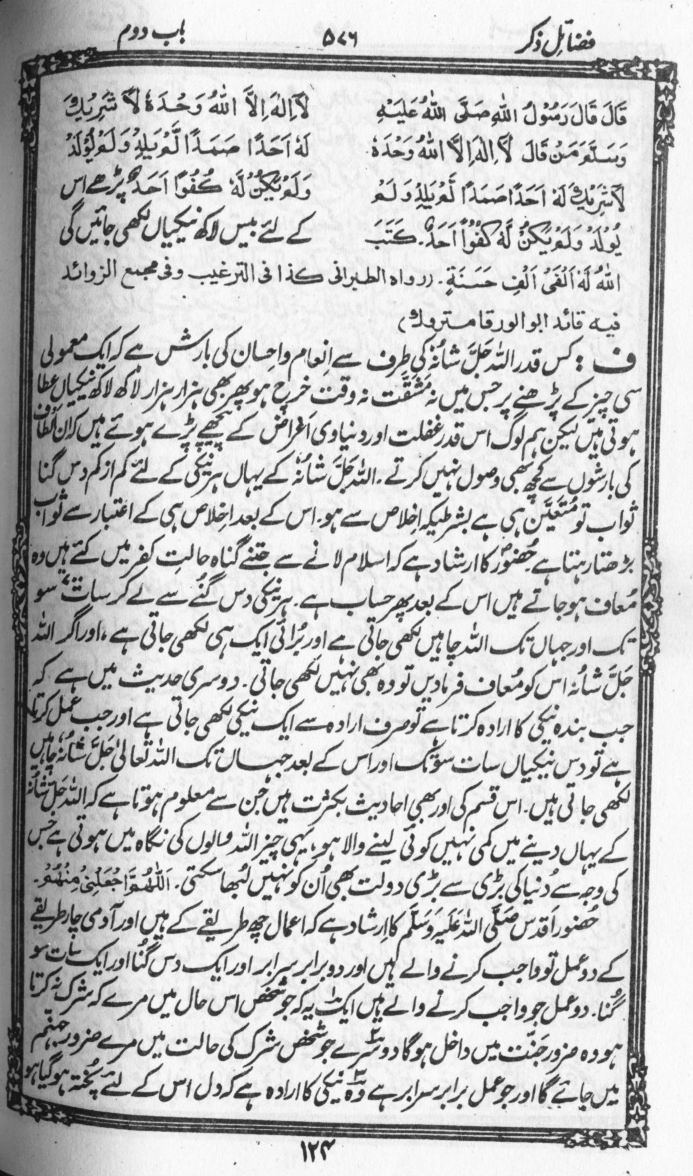 فضائل ذکر ۵۷۶ باب دوم
قَالَ قَالَ رَسُوْلُ اللهِ صَلَّى اللهُ عَلَيْهِ
وَسَلَّمَ مَنْ قَالَ لَآ اِلٰهَ اِلَّا اللهُ وَحْدَهٗ
لَاشَرِيْكَ لَهٗ اَحَدًا صَمَدًا لَّمْ يَلِدْ وَلَمْ
يُوْلَدْ وَلَمْ يَكُنْ لَّهٗ كُفُوًا اَحَدٌ. كَتَبَ
لَآ اِلٰهَ اِلَّا اللهُ وَحْدَهٗ لَا شَرِيْكَ
لَهٗ اَحَدًا صَمَدًا لَّمْ يَلِدْ وَلَمْ يُوْلَدْ
وَلَمْ يَكُنْ لَّهٗ كُفُوًا اَحَدٌ پڑھے اس
کے لئے بیس لاکھ نیکیاں لکھی جائیں گی
اللهُ لَهٗ اَلْفَيْ اَلْفِ حَسَنَةٍ۔ (رواه الطبرانى كذا فى الترغيب وفى مجمع الزوائد
فيه فائد ابو الورقا متروك)
ف : کس قدر اللہ جَلَّ شانُہٗ کی طرف سے اِنعام واحِسان کی بارش ہے کہ ایک معمولی
سی چیز کے پڑھنے پر جس میں نہ مَشقَّت نہ وقت خرچ ہو پھر بھی ہزار ہزار لاکھ لاکھ نیکیاں عطا
ہوتی ہیں لیکن ہم لوگ اس قدر غفلت اور دنیاوی اَغراض کے پیچھے پڑے ہوئے ہیں کہ ان اَلطاف
کی بارشوں سے کچھ بھی وصول نہیں کرتے۔ اللہ جَلَّ شانُہٗ کے یہاں ہر نیکی کے لئے کم از کم دس گنا
ثواب تو مُتَعَیَّن ہی ہے بشرطیکہ اِخلاص سے ہو۔ اس کے بعد اِخلاص ہی کے اعتبار سے ثواب
بڑھتا رہتا ہے حُضورؐ کا ارشاد ہے کہ اسلام لانے سے جتنے گناہ حالت کفر میں کئے ہیں وہ
مُعاف ہو جاتے ہیں اس کے بعد پھر حساب ہے۔ ہر نیکی دس گُنے سے لے کر سات سو
تک اور جہاں تک اللہ چاہیں لکھی جاتی ہے اور بُرائی ایک ہی لکھی جاتی ہے، اور اگر اللہ
جَلَّ شانُہٗ اس کو مُعاف فرما دیں تو وہ بھی نہیں لکھی جاتی۔ دوسری حدیث میں ہے کہ
جب بندہ نیکی کا ارادہ کرتا ہے تو صرف ارادہ سے ایک نیکی لکھی جاتی ہے اور جب عمل کرتا
ہے تو دس نیکیاں سات سو تک اور اس کے بعد جہاں تک اللہ تعالیٰ جَلَّ شانُہٗ چاہیں
لکھی جاتی ہیں۔ اس قسم کی اور بھی احادیث بکثرت ہیں جن سے معلوم ہوتا ہے کہ اللہ جَلَّ شانُہٗ
کے یہاں دینے میں کمی نہیں کوئی لینے والا ہو، یہی چیز اللہ والوں کی نگاہ میں ہوتی ہے جس
کی وجہ سے دُنیا کی بڑی سے بڑی دولت بھی اُن کو نہیں لُبھا سکتی۔ اَللّٰهُمَّ اجْعَلْنِيْ مِنْهُمْ۔
حُضورِ اَقدس صَلَّی اللہُ عَلَیْہِ وَسَلَّمَ کا اِرشاد ہے کہ اعمال چھ طریقے کے ہیں اور آدمی چار طریقے
کے دو عمل تو واجب کرنے والے ہیں اور دو برابر سرابر اور ایک دس گُنا اور ایک سات سو
گُنا۔ دو عمل جو واجب کرنے والے ہیں ایک یہ کہ جو شخص اس حال میں مرے کہ شرک نہ کرتا
ہو وہ ضرور جنّت میں داخل ہوگا دوسرے جو شخص شرک کی حالت میں مرے ضرور جہنّم
میں جائے گا اور جو عمل برابر سرابر ہے وہ نیکی کا ارادہ ہے کہ دل اس کے لئے پُختہ ہو گیا ہو
۱۲۴